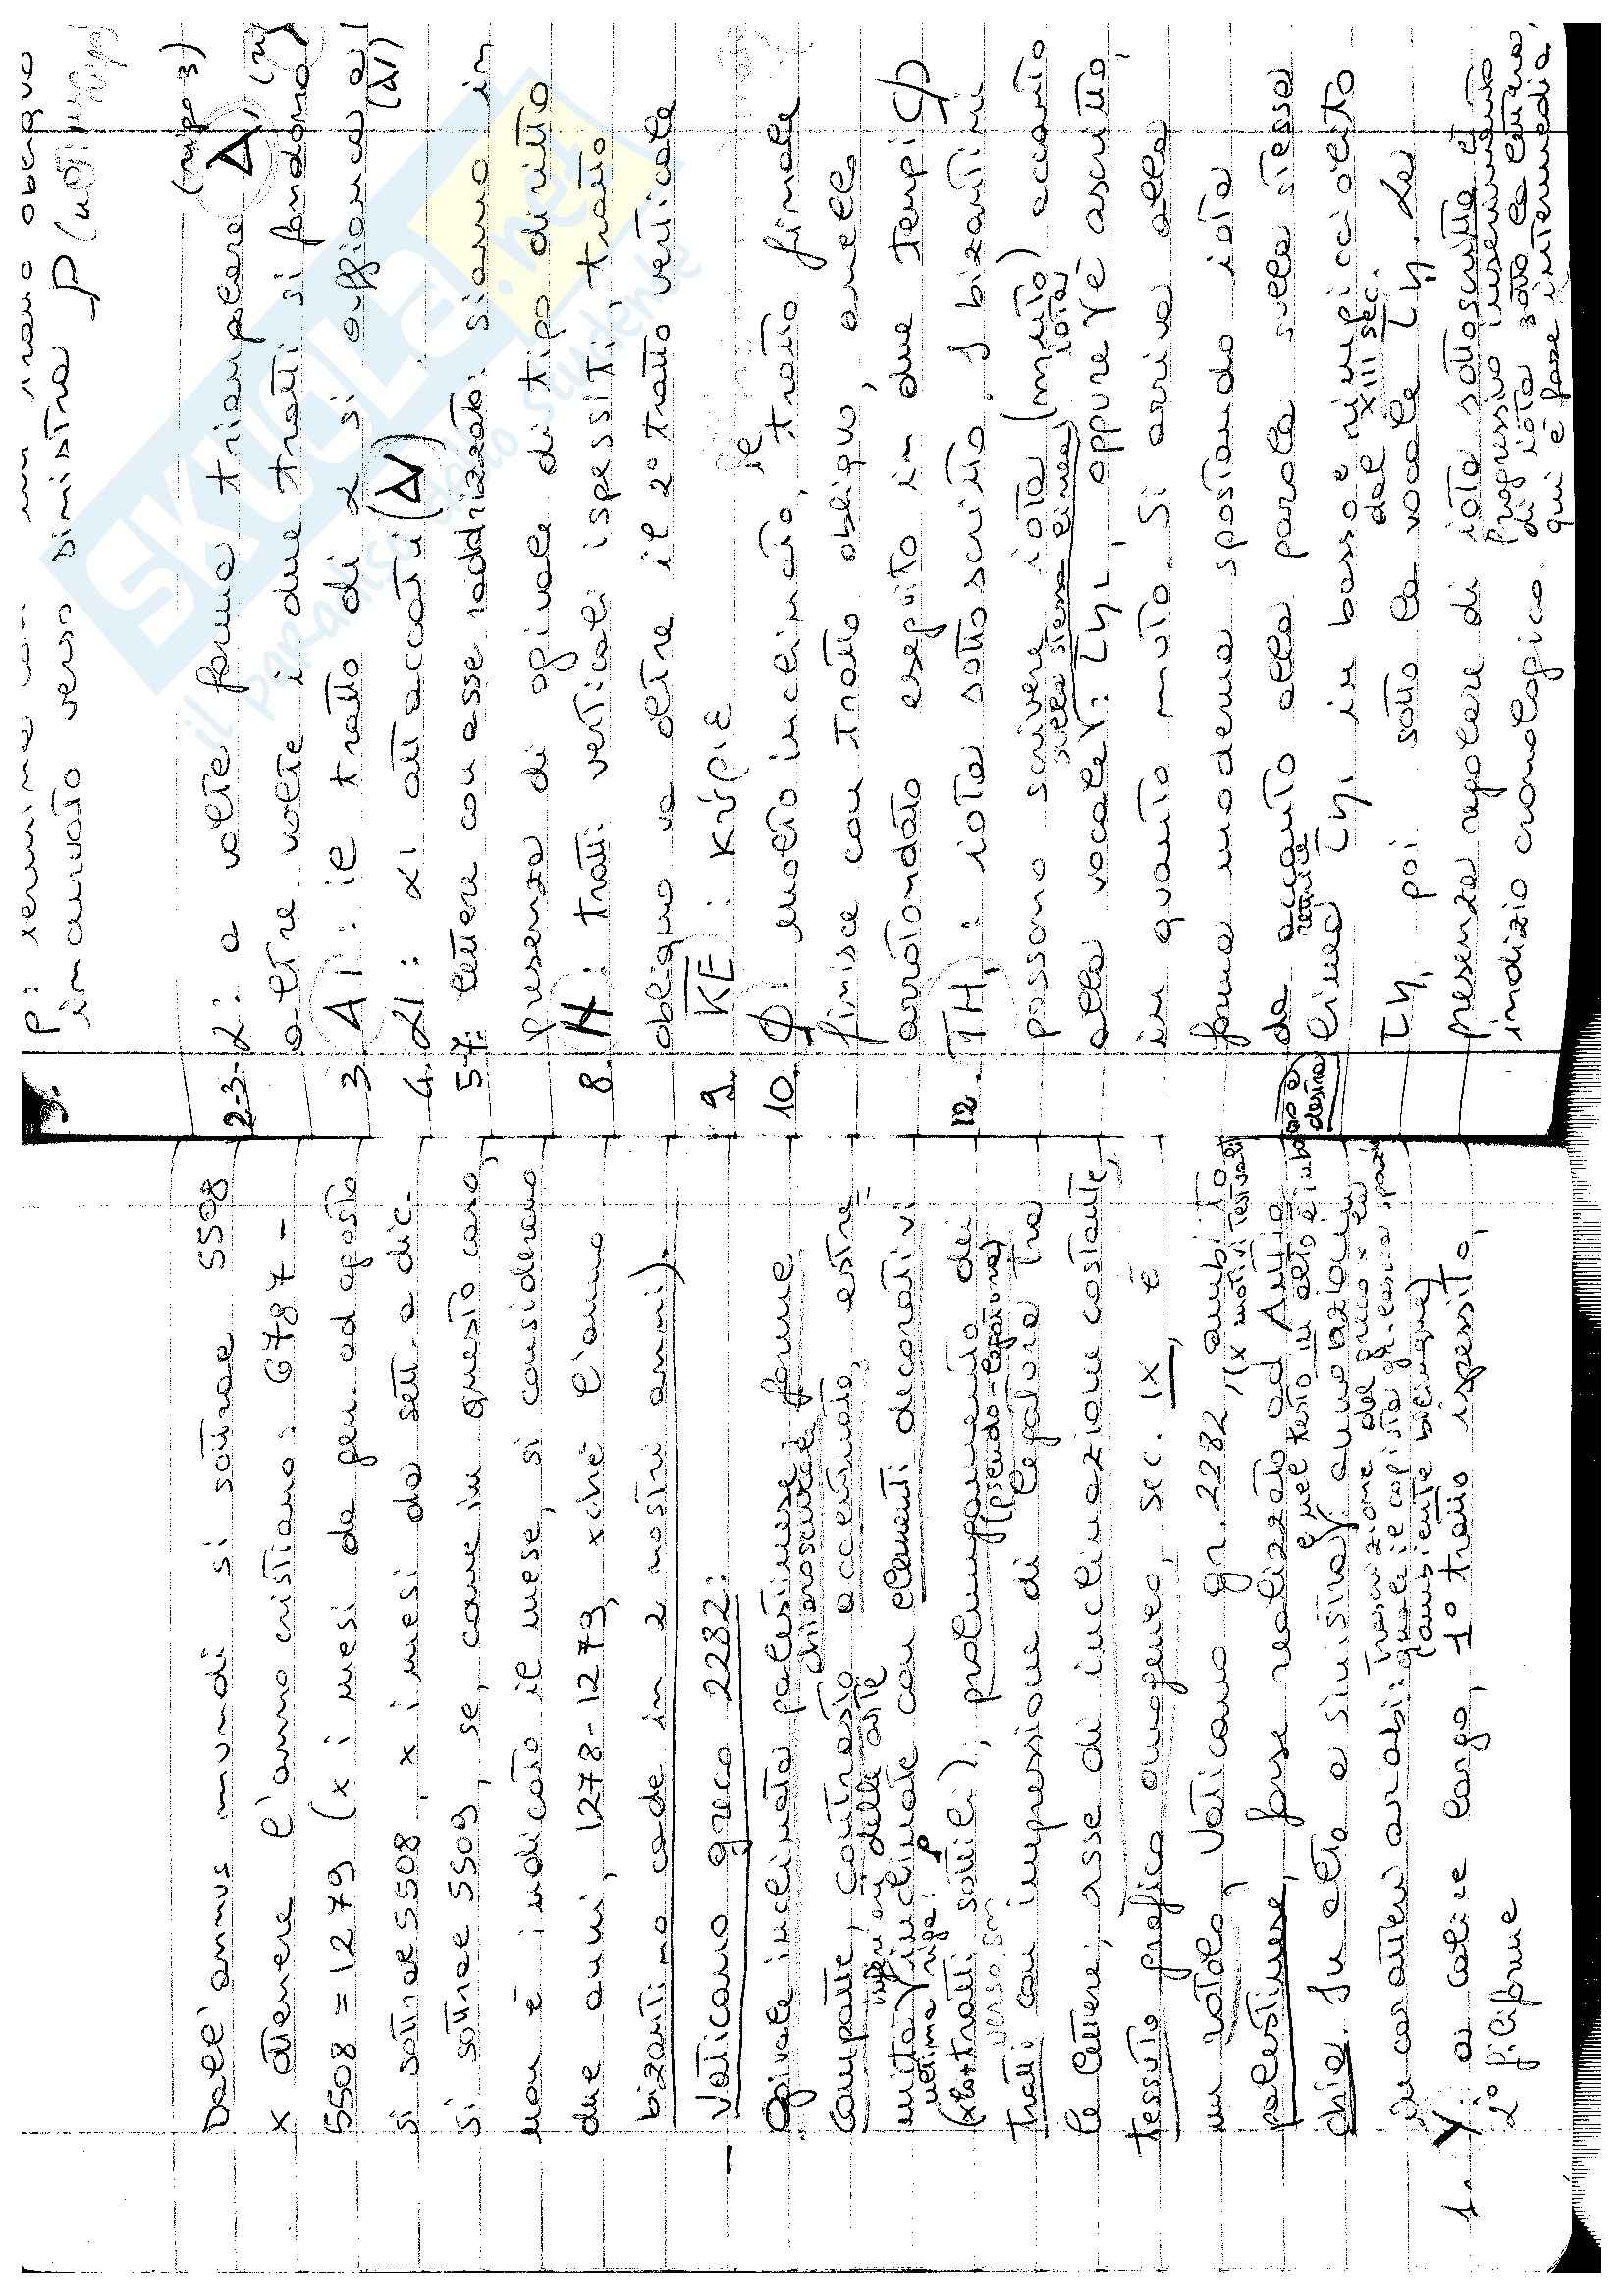 Dall'annus mundi si sottrae 5508
x ottenere l'anno cristiano: 6787 -
5508 = 1279 (x i mesi da gen. ad agosto
si sottrae 5508, x i mesi da sett. a dic.
si sottrae 5509, se, come in questo caso,
non è indicato il mese, si considerano
due anni, 1278-1279, xché l'anno
bizantino cade in 2 nostri anni).
- Vaticano greco 2282:
Ogivale inclinata palestinese: forme
chiaroscurale
compatte, contrasto accentuato, estre-
mità inclinate con elementi decorativi
ultima riga: P
verso sin
(x lo + tratti sottili), prolungamento dei
tratti con impressione di legatura tra
(pseudo-legatura)
le lettere; asse di inclinazione costante,
tessuto grafico omogeneo, sec. IX, è
un rotolo, Vaticano gr. 2282, ambito
(x motivi testuali)
palestinese, forse realizzato ad Antio-
chia. In alto a sinistra annotazioni
in caratteri arabi:
trascrizione del greco x la
quale il copista gr. lascia spazio
(ambiente bilingue)
1. Y a calice largo, 1° tratto ispessito,
2° filiforme
3.
P: termina con un tratto obliquo
incurvato verso sinistra P (ultima
riga)
2-3. α: a volte forma triangolare A,
(riga 3)
altre volte i due tratti si fondono
3. AI: il tratto di α si affianca a I
4. αI: αI attaccati (AI)
5-7: lettere con asse raddrizzato: siamo in
presenza di ogivale di tipo diritto
8. H: tratti verticali ispessiti, tratto
obliquo va oltre il 2° tratto verticale
9. KE: κύριε
10. φ: molto inclinato, il tratto finale
finisce con tratto obliquo, anello
arrotondato eseguito in due tempi φ
12. TH: iota sottoscritto. I bizantini
possono scrivere iota (muto) accanto
sulla stessa linea
alla vocale: τηι oppure è ascritto,
iota
in quanto muto. Si arriva alla
forma moderna spostando iota
da accanto alla parola sulla stessa
linea τηι in basso e rimpicciolito
rettrice
basso a
destra
dal XIII sec.
τη, poi sotto la vocale τῃ. La
presenza regolare di iota sottoscritto è
indizio cronologico.
Progressivo inserimento
di iota sotto la lettera,
qui è fase intermedia.
il paradiso dello studente
SKUOLA.net